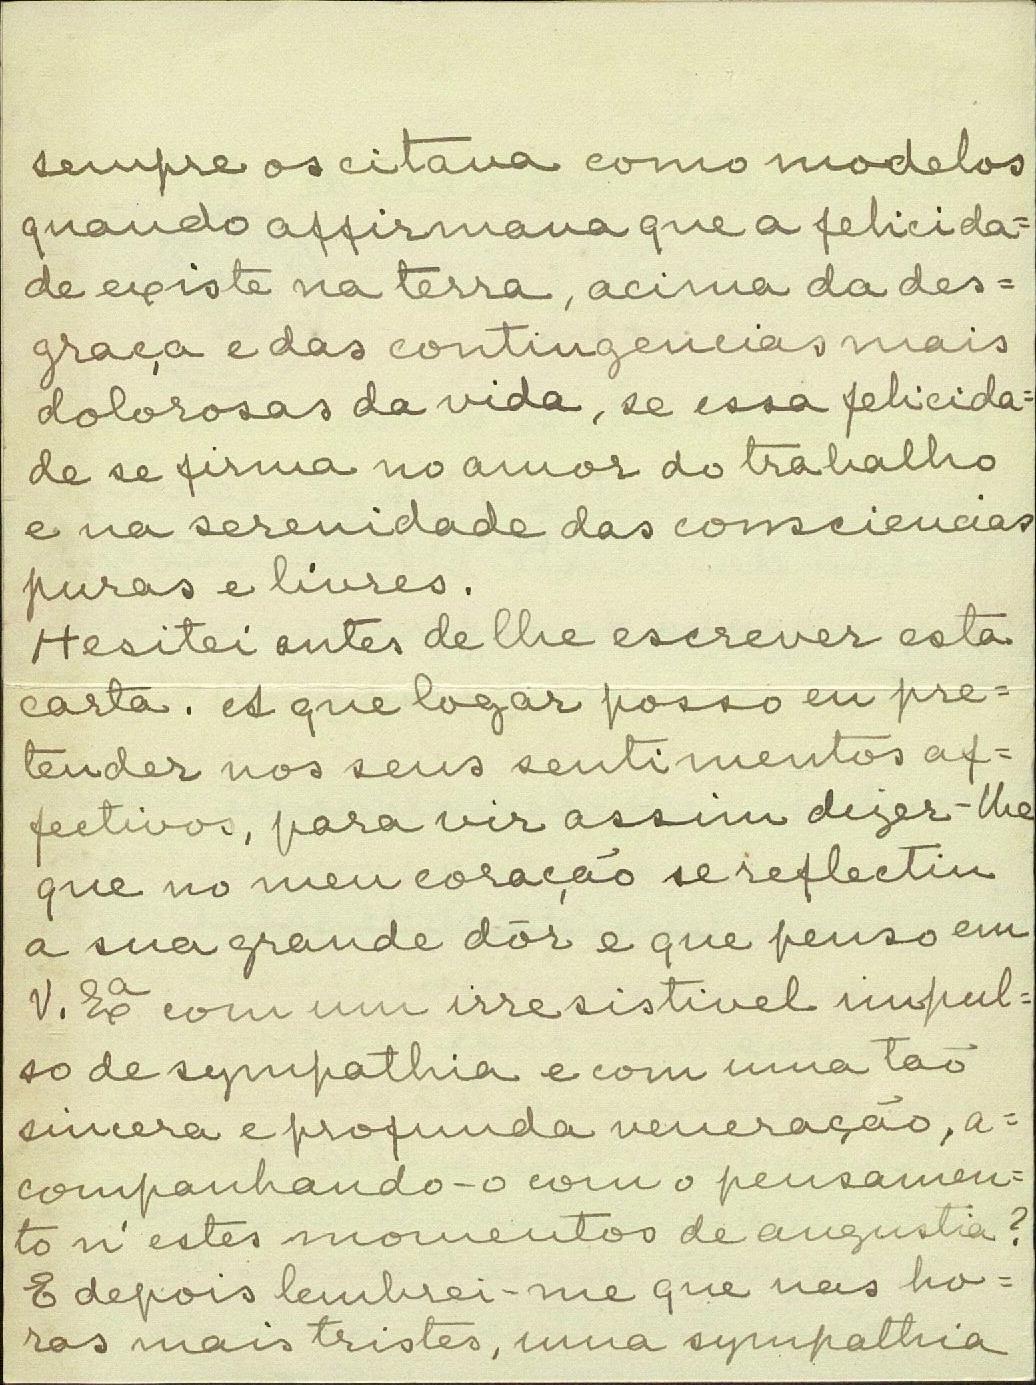 sempre os citava como modelos
quando affirmava que a felicida=
de existe na terra, acima da des=
graça e das contingencias mais
dolorosas da vida, se essa felicida=
de se firma no amor do trabalho
e na serenidade das consciencias
puras e livres.
Hesitei antes de lhe escrever esta
carta. A que logar posso eu pre=
tender nos seus sentimentos af=
fectivos, para vir assim dizer-lhe
que no meu coração se reflectiu
a sua grande dôr e que penso em
V. Exª com um irresistivel impul=
so de sympathia e com uma tão
sincera e profunda veneração, a=
companhando-o com o pensamen=
to n'estes momentos de angustia?
E depois lembrei-me que nas ho=
ras mais tristes, uma sympathia